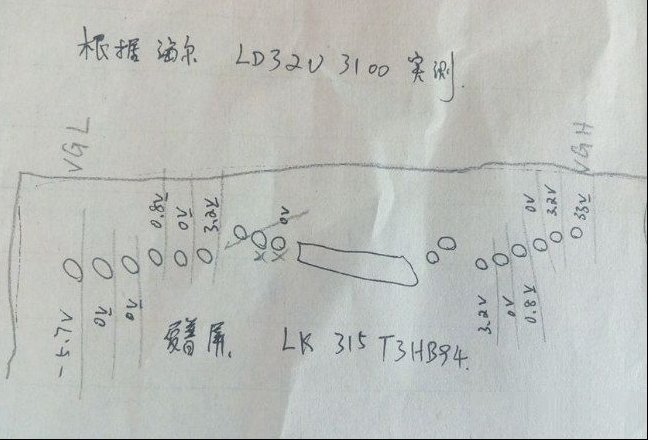 根据海尔 LD32U3100 实测.
VGL
VGH
0.8V
0V
3.2V
0V
0V
3.2V
33V
-5.7V
0V
0V
3.2V
0V
0.8V
爱普屏. LK 315T3HB94.